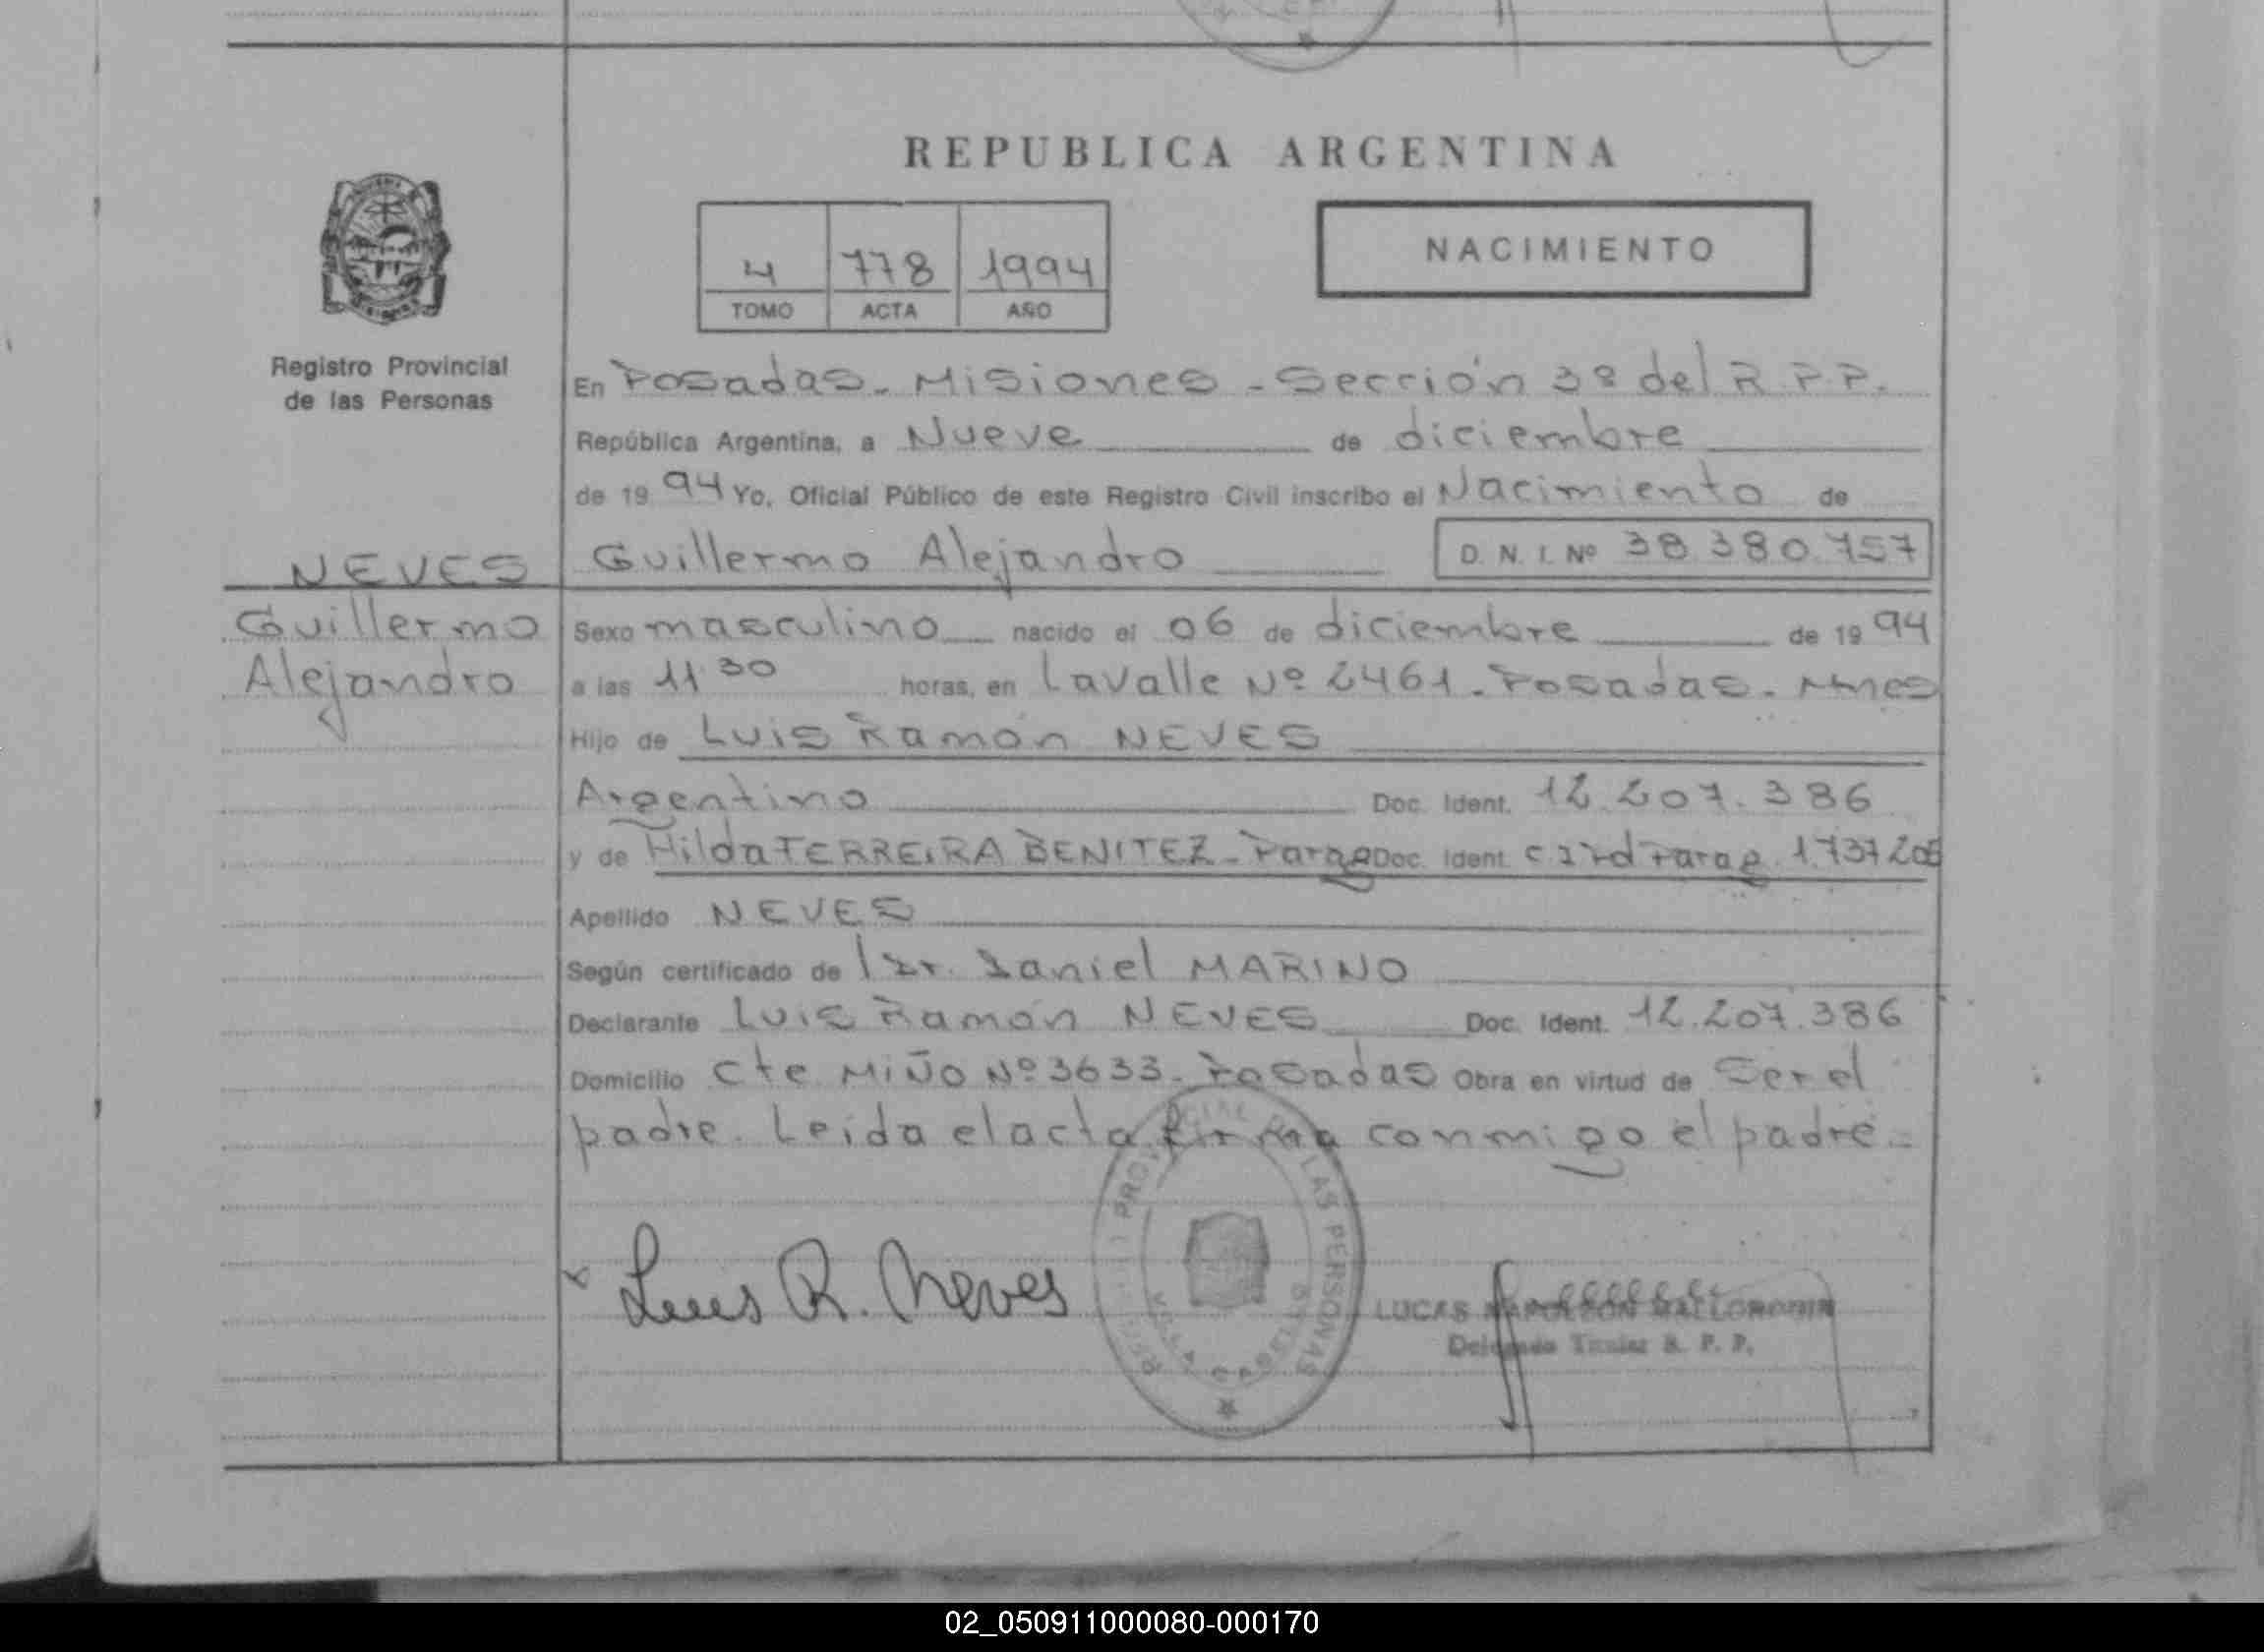 REPUBLICA ARGENTINA
NACIMIENTO
4 778 1994
TOMO ACTA AÑO
Registro Provincial
de las Personas
En Posadas - Misiones - Sección 3º del R.P.P.
República Argentina, a Nueve de diciembre
de 1994 Yo, Oficial Público de este Registro Civil inscribo el Nacimiento de
Guillermo Alejandro D. N. I. Nº 38.380.757
NEVES
Guillermo
Alejandro
Sexo masculino nacido el 06 de diciembre de 1994
a las 11 30 horas, en Lavalle Nº 2461 - Posadas - Mnes
Hijo de Luis Ramón NEVES
Argentino Doc. Ident. 12.207.386
y de Hilda FERREIRA BENITEZ - Parag Doc. Ident. Parag.
Apellido NEVES
Según certificado de Daniel MARINO
Declarante Luis Ramón NEVES Doc. Ident. 12.207.386
Domicilio Cte Miño Nº 3633 - Posadas Obra en virtud de Ser el
padre. Leida el acta firma conmigo el padre.-
Luis R. Neves
PROVINCIAL DE LAS PERSONAS
LUCAS NAPOLEON
Delegado Titular R. P. P.
02_050911000080-000170